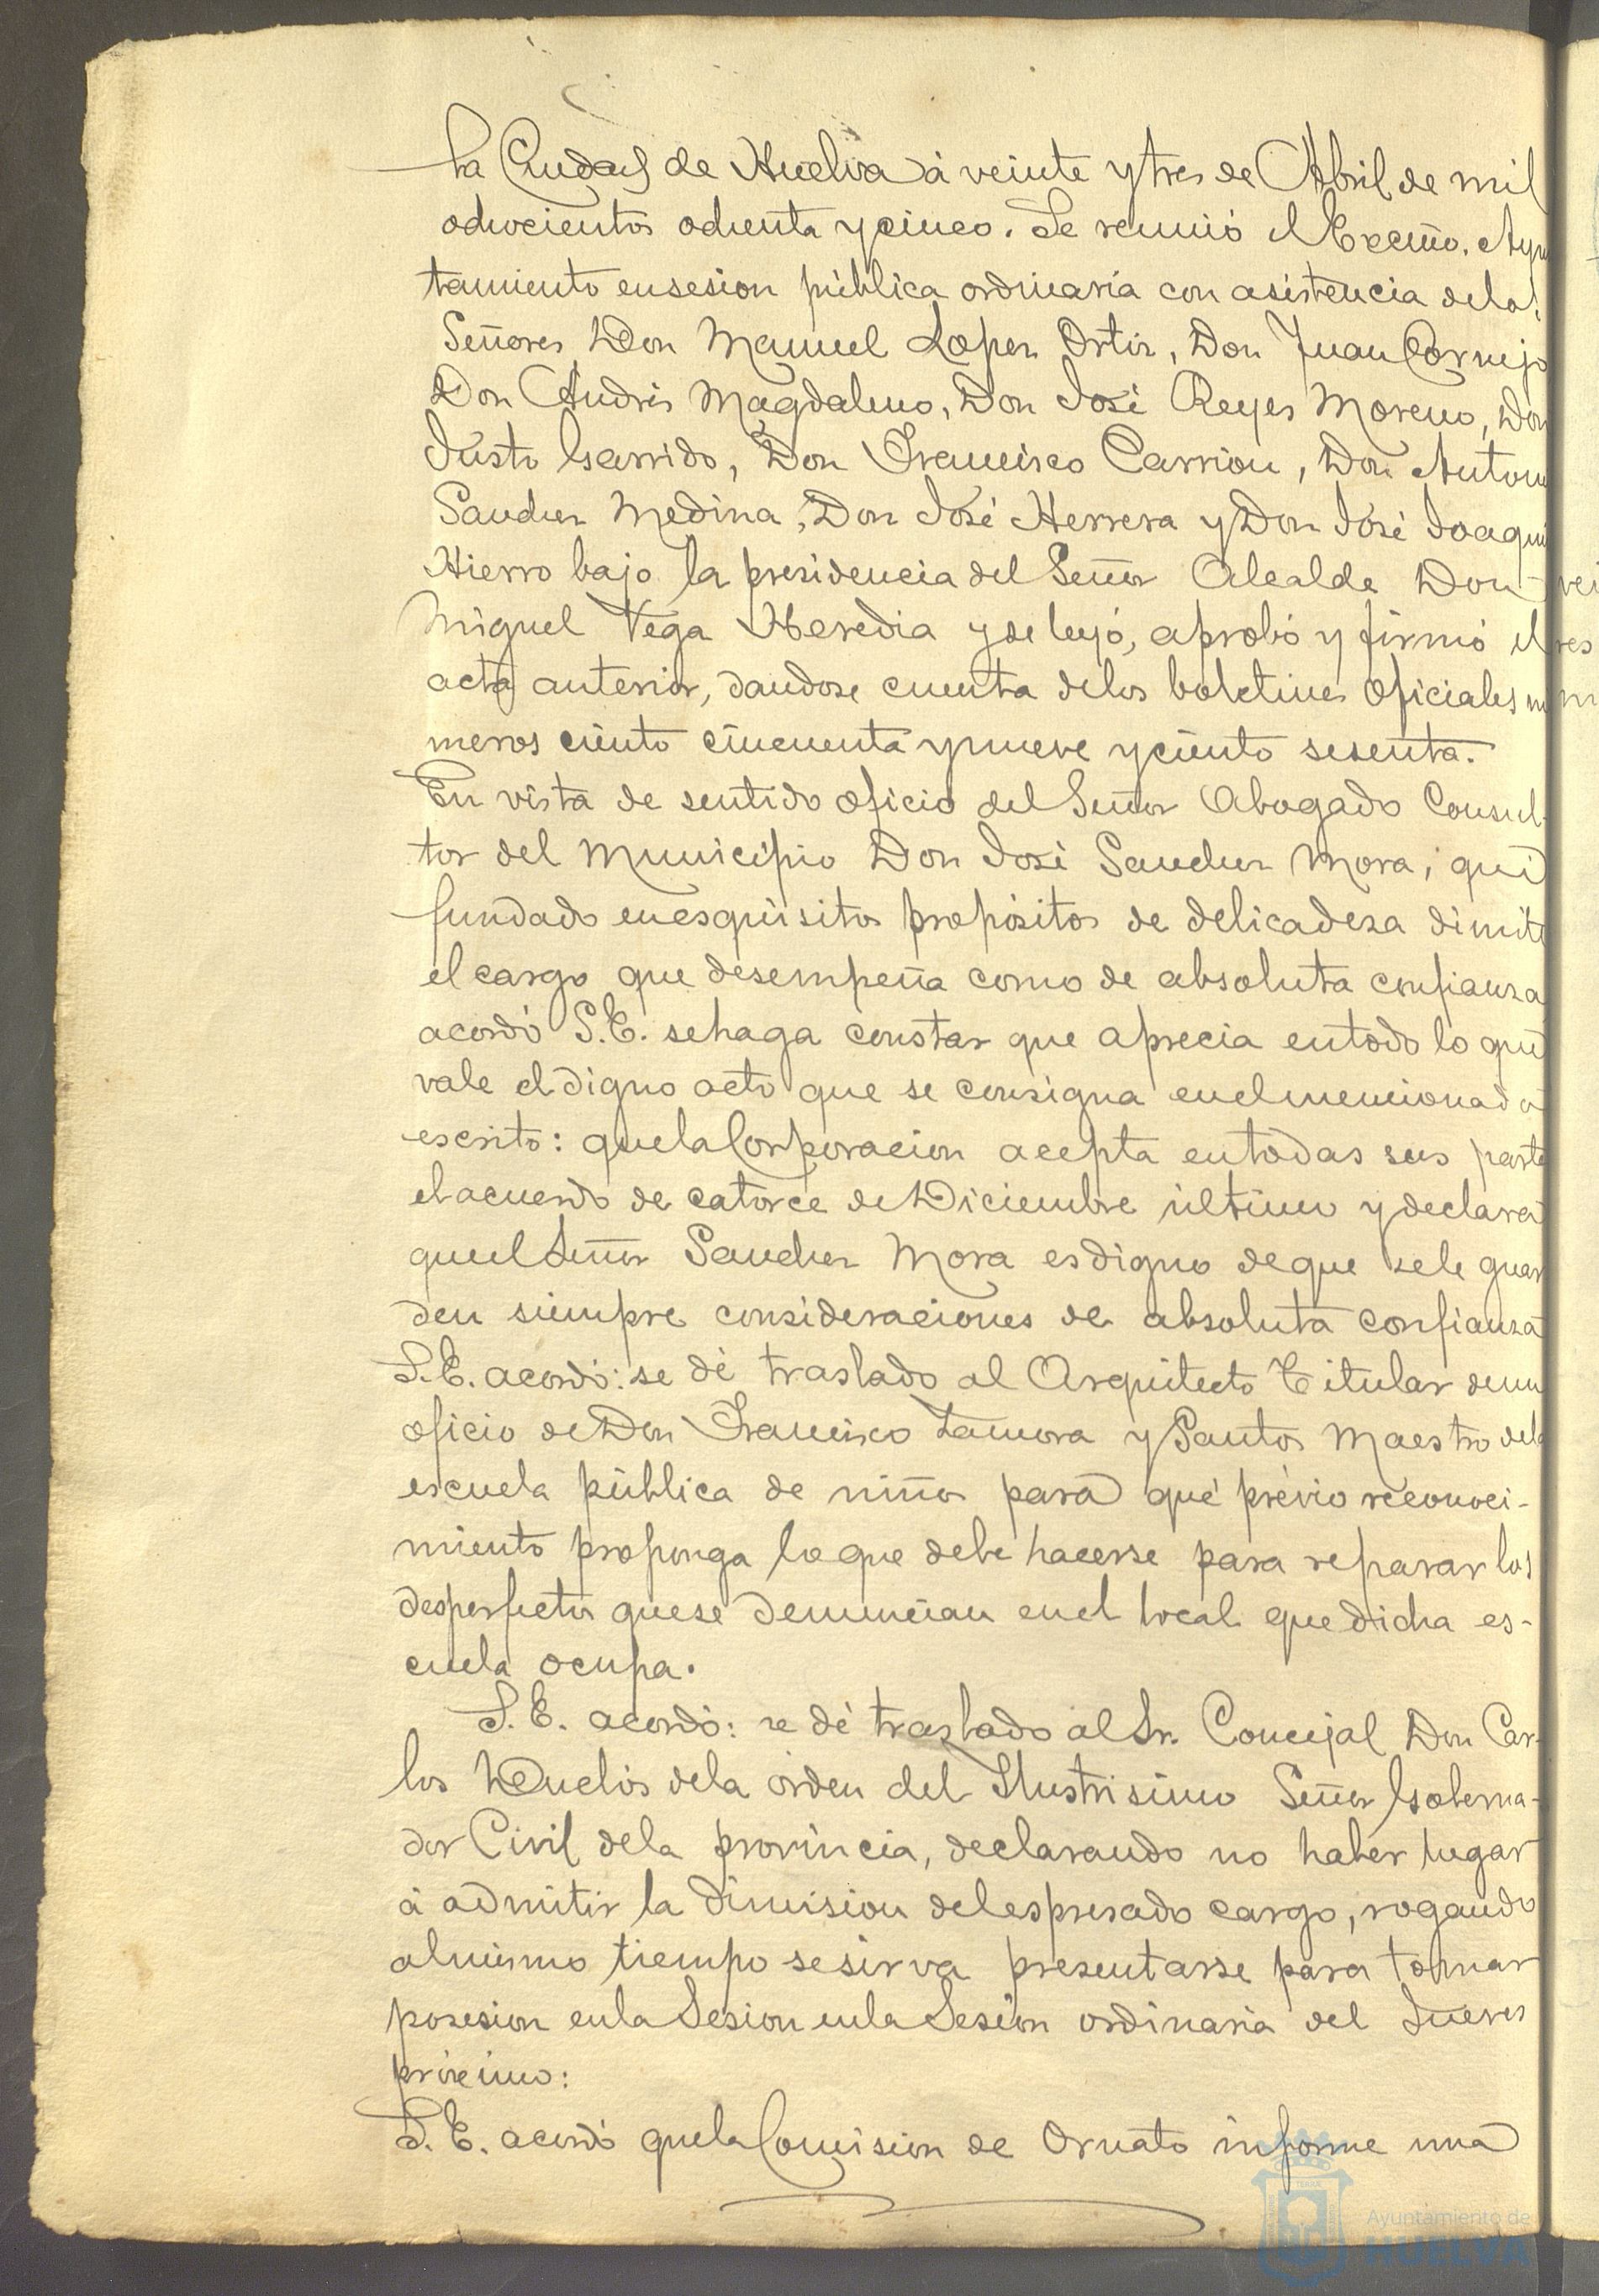 La Ciudad de Huelva á veinte y tres de Abril de mil
ochocientos ochenta y cinco. Se reunió el Excmo. Ayun
tamiento en sesion pública ordinaria con asistencia de los
Señores Don Manuel Lopez Ortiz, Don Juan Cornejo
Don Andrés Magdaleno, Don José Reyes Moreno, Don
Justo Garrido, Don Francisco Carrion, Don Antonio
Sanchez Medina, Don José Herrera y Don José Joaquin
Hierro bajo la presidencia del Señor Alcalde Don
Miguel Vega Heredia y se leyó, aprobó y firmó el
acta anterior, dandose cuenta de los boletines oficiales nu
meros ciento cincuenta y nueve y ciento sesenta.
En vista de sentido oficio del Señor Abogado Consul-
tor del Municipio Don José Sanchez Mora, que
fundado en esquisitos propósitos de delicadeza dimite
el cargo que desempeña como de absoluta confianza
acordó S.E. se haga constar que aprecia en todo lo que
vale el digno acto que se consigna en el mencionado
escrito: que la Corporacion acepta en todas sus partes
el acuerdo de catorce de Diciembre último y declara
que el Señor Sanchez Mora es digno de que se le guar
den siempre consideraciones de absoluta confianza
S.E. acordó: se dé traslado al Arquitecto Titular de un
oficio de Don Francisco Zamora y Santos Maestro de la
escuela pública de niños para que prévio reconoci-
miento proponga lo que debe hacerse para reparar los
desperfectos que se denuncian en el local que dicha es-
cuela ocupa.
S.E. acordó: se dé traslado al Sr. Concejal Don Car-
los Duclós de la órden del Ilustrisimo Señor Goberna-
dor Civil de la provincia, declarando no haber lugar
á admitir la dimision del espresado cargo, rogando
al mismo tiempo se sirva presentarse para tomar
posesion en la Sesion en la Sesion ordinaria del Jueves
próximo:
S.E. acordó que la Comision de Ornato informe una
Ayuntamiento de
HUELVA